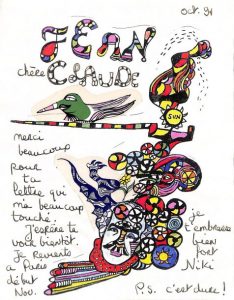 oct. 91
JEAN
chère CLAUDE
SUN
merci
beaucoup
pour
ta
lettre qui
m'a beaucoup
touché.
J'espère te
voir bientôt.
Je reviens
à Paris
début
Nov.
je
t'embrasse
bien
fort
Niki
P.S. c'est dure!